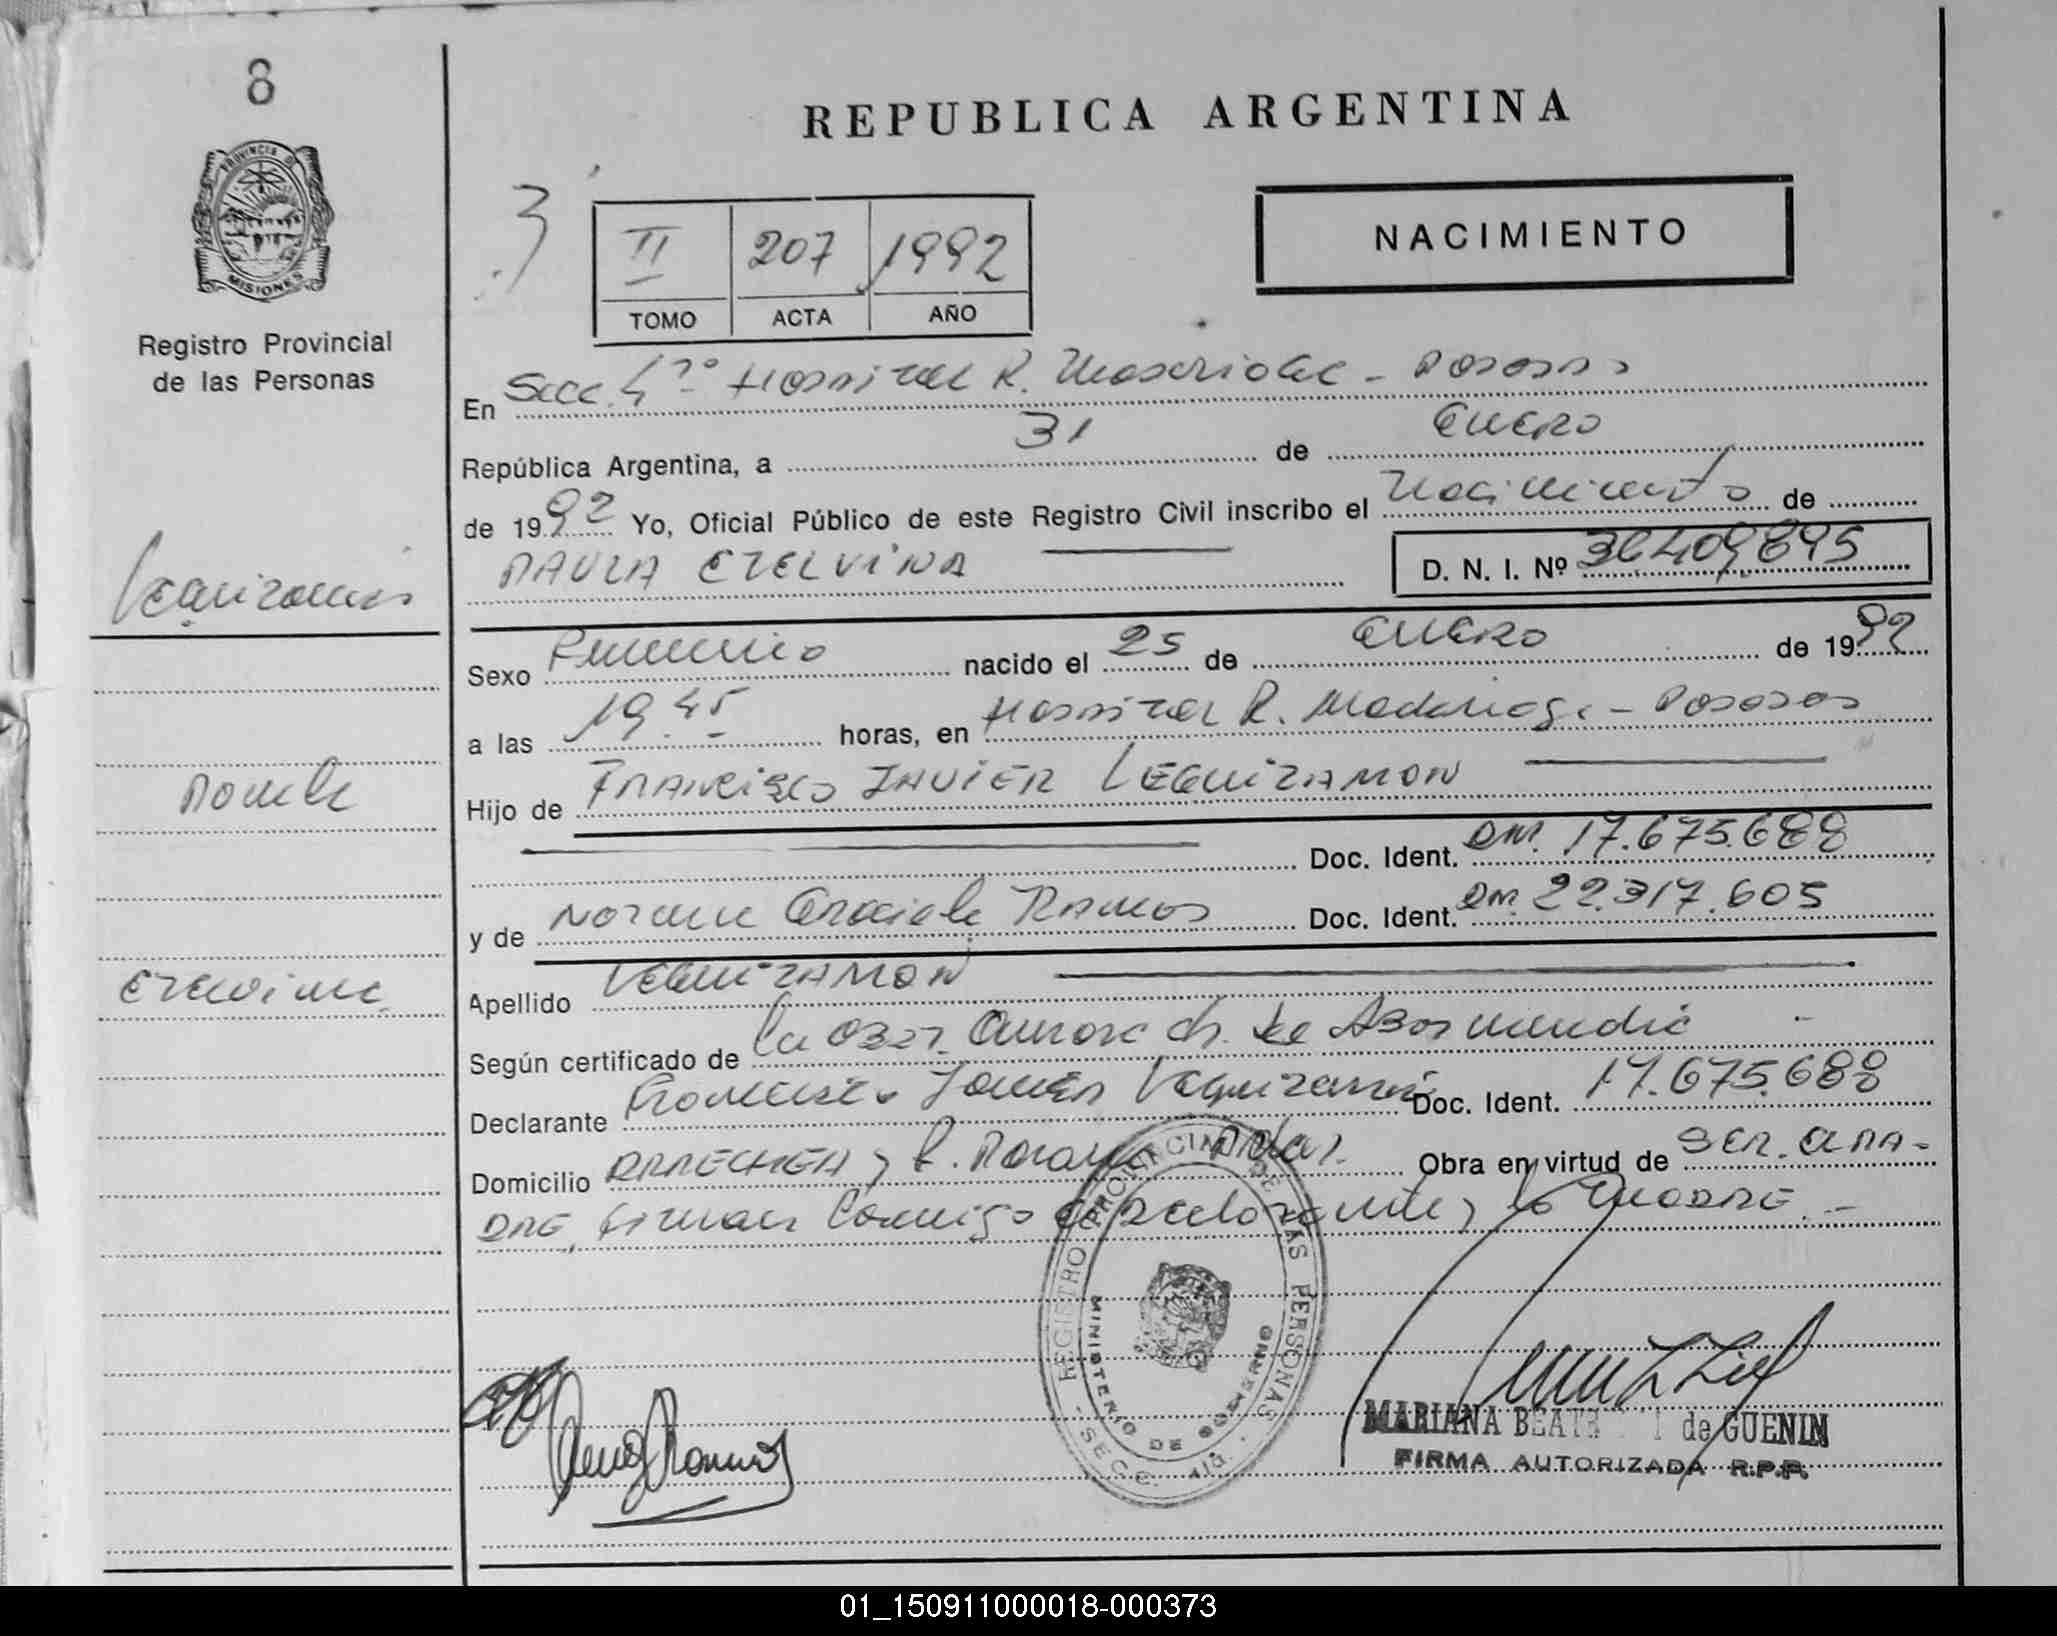 8
REPUBLICA ARGENTINA
PROVINCIA DE
MISIONES
Registro Provincial
de las Personas
3
II 207 1992
TOMO ACTA AÑO
NACIMIENTO
En Secc. 4ta Hospital R. Madariaga - Posadas
República Argentina, a 31 de Enero
de 1992 Yo, Oficial Público de este Registro Civil inscribo el Nacimiento de
PAULA ETELVINA
D. N. I. Nº 36409895
Leguizamón
Sexo Femenino nacido el 25 de Enero de 1992
a las 19.45 horas, en Hospital R. Madariaga - Posadas
Paula
Hijo de FRANCISCO JAVIER LEGUIZAMON
Doc. Ident. DNI. 17.675.688
y de Norma Graciela Ramos Doc. Ident. DNI. 22.317.605
Etelvina
Apellido LEGUIZAMON
Según certificado de la Obst. Aurora Ch. de
Declarante Francisco Javier Leguizamón Doc. Ident. 17.675.688
Domicilio y Obra en virtud de ser el PA-
DRE, firman conmigo el declarante y la MADRE.-
REGISTRO PROVINCIAL DE LAS PERSONAS
MINISTERIO DE GOBIERNO
- SECC. 4ta -
MARIANA de GUENIN
FIRMA AUTORIZADA R.P.P.
01_150911000018-000373